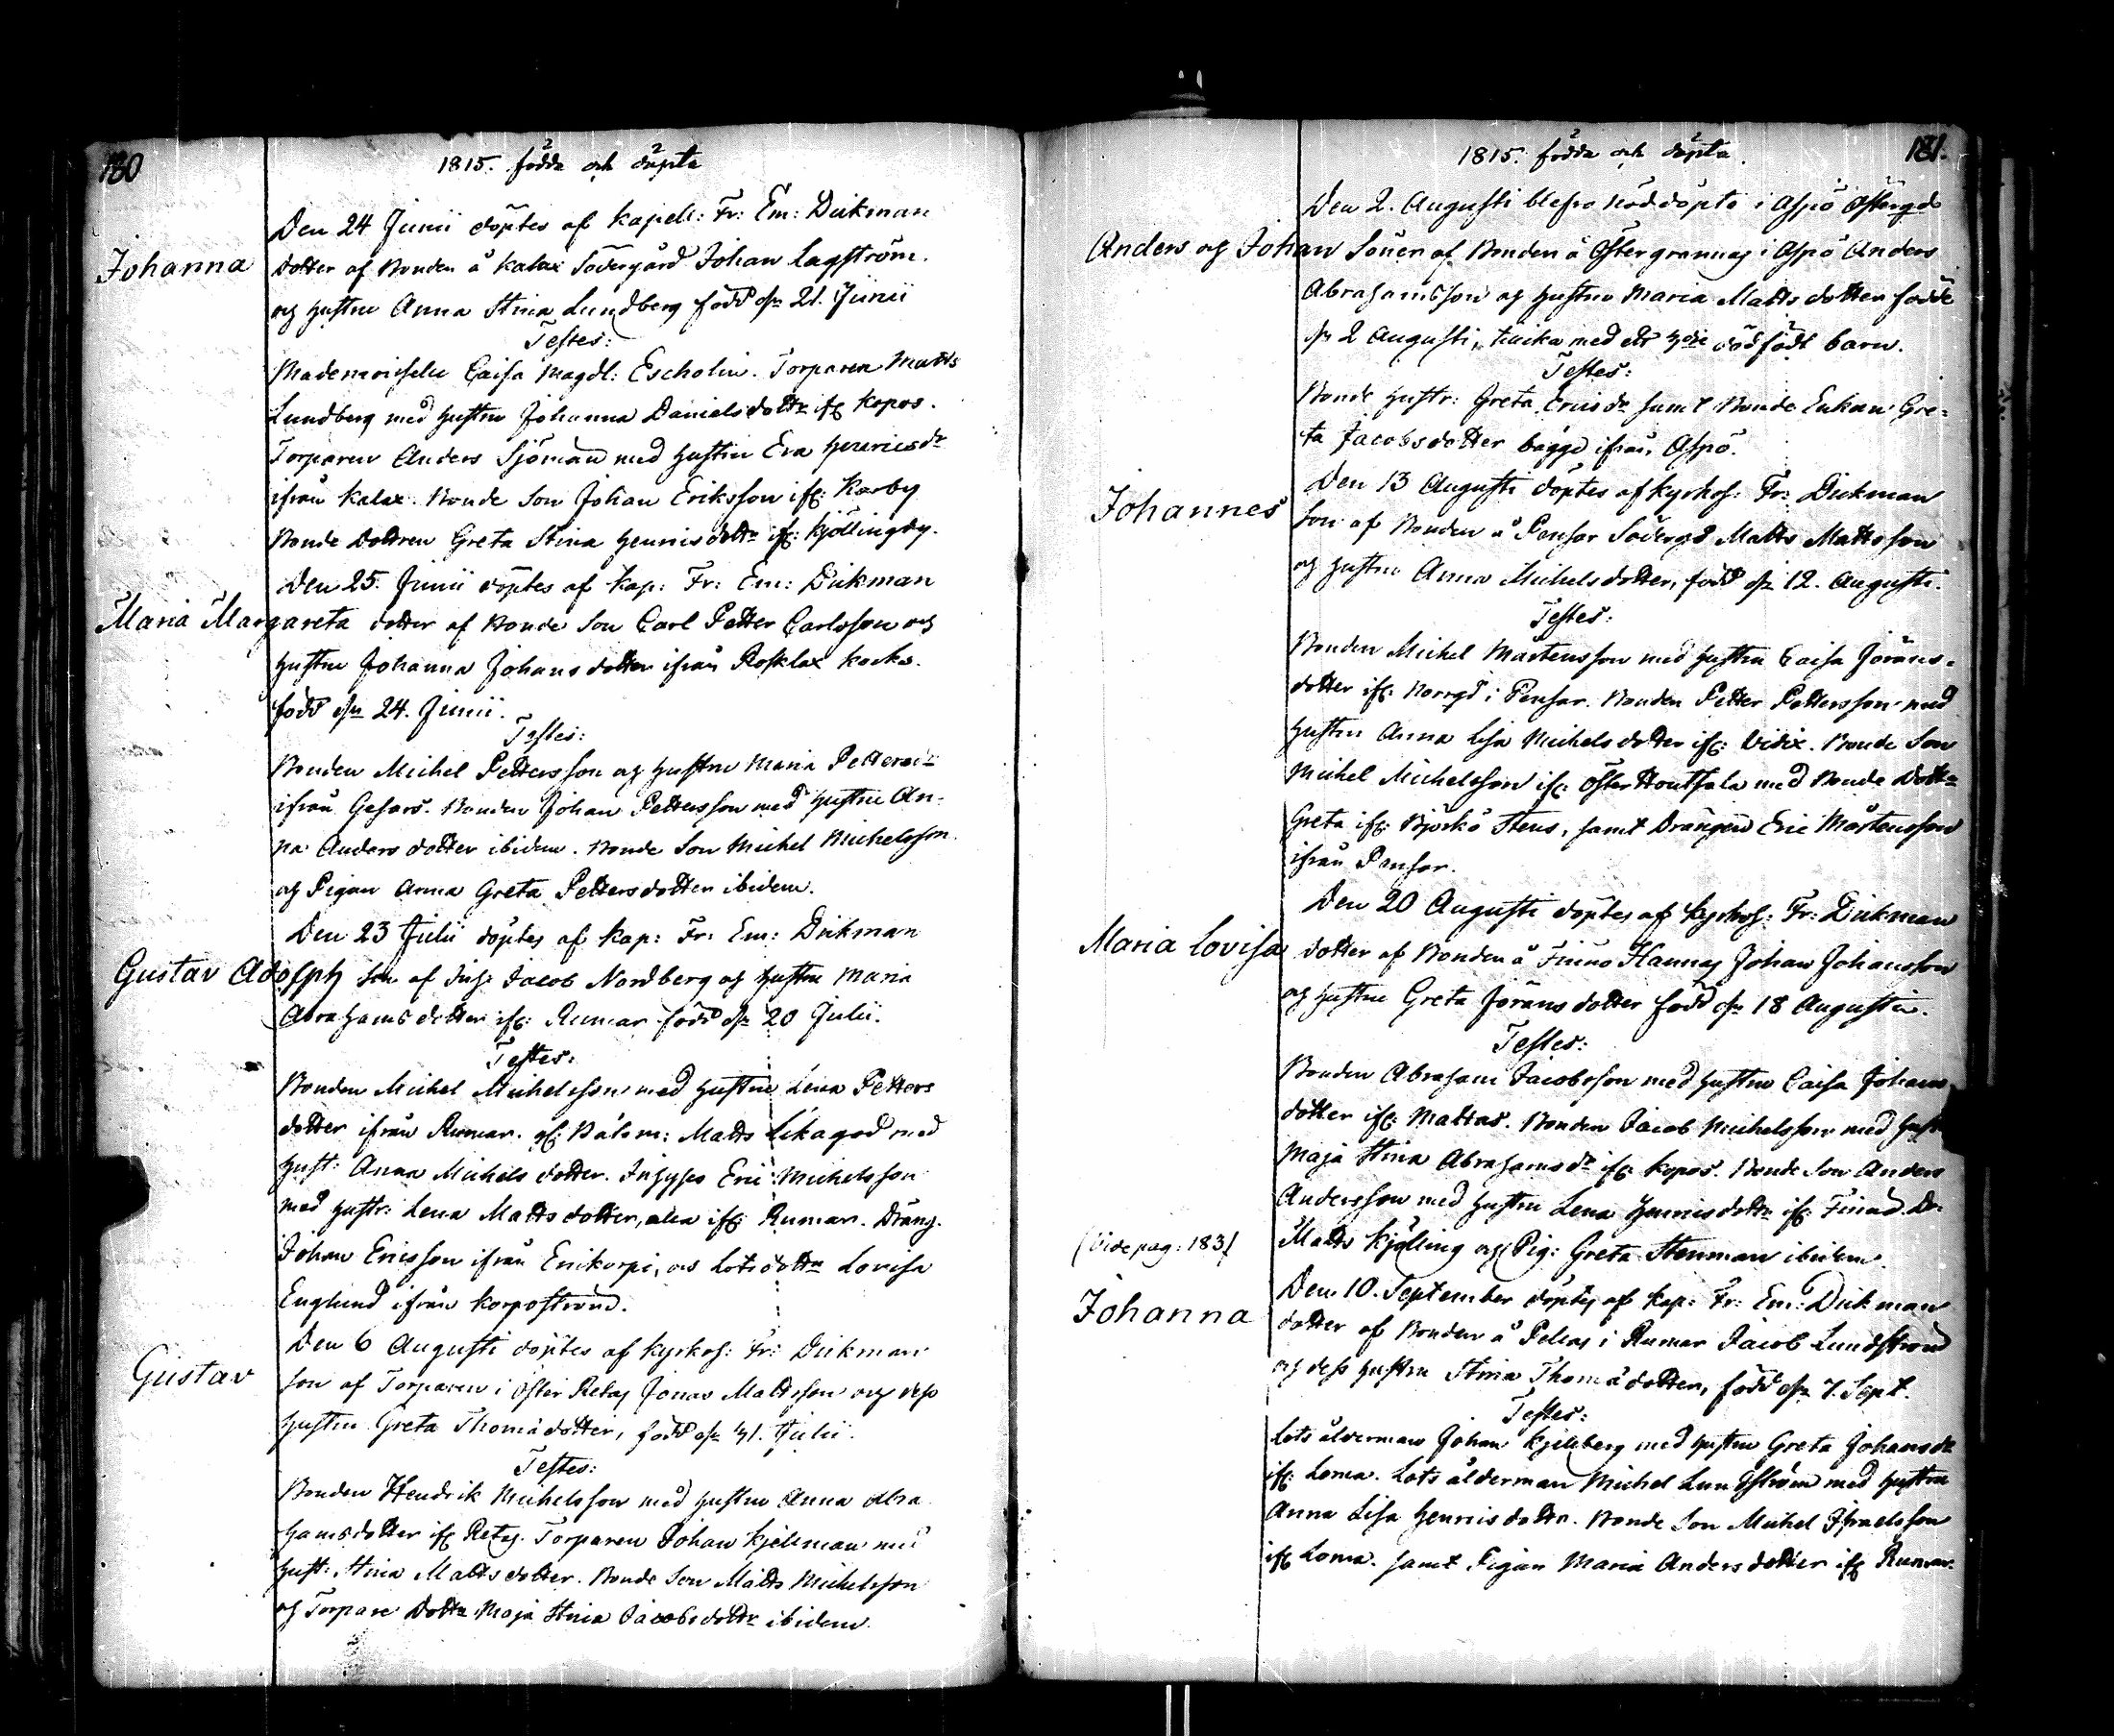 180
1815. födde och döpte
Johanna
Den 24 Junii döptes af Kapell: Fr: Em: Dickman
dotter af Bonden å Kalax Södergård Johan Lagström
og hustru Anna Stina Lundberg född dn 21. Junii
Testes:
Mademoiselle Caisa Magdl: Escholin. Torparen Matts
Lundberg med hustru Johanna Danielsdottr ifr: Kopos.
Torparen Anders Sjöman med hustru Eva Henricsdr
ifrån Kalax. Bonde Son Johan Eriksson ifr: Korby
Bonde Dottren Greta Stina Henricsdottr ifr: Kjöllingby.
Maria Margareta
Den 25. Junii döptes af Kap: Fr: Em: Dickman
dotter af Bonde Son Carl Petter Carlsson og
hustru Johanna Johansdotter ifrån Rosklax Kocks.
född dn 24. Junii.
Testes:
Bonden Michel Pettersson og hustru Maria Pettersdr
ifrån Gesars. Bonden Johan Pettersson med hustru An-
na Andersdotter ibidem. Bonde Son Michel Michelsson
og Pigan Anna Greta Pettersdotter ibidem.
Gustav Adolph
Den 23 Julii döptes af Kap: Fr: Em: Dickman
Son af Inh: Jacob Nordberg og hustru Maria
Abrahamsdotter ifr: Rumar född dn 20 Julii.
Testes:
Bonden Michel Michelsson med hustru Lena Petters
dotter ifrån Rumar. Båtsm: Matts Likagod med
hust: Anna Michelsdotter. Inhyses Eric Michelsson
med hustr: Lena Mattsdotter, alla ifr: Rumar. Dräng.
Johan Ericsson ifrån Enikorpi, os Lotsdottr Lovisa
Englund ifrån Korpostrand.
Gustav
Den 6 Augusti döptes af Kyrkoh: Fr: Dickman
son af Torparen i Öster Retas Jonas Mattsson og dess
hustru Greta Thomasdotter, född dn 31. Julii.
Testes:
Bonden Hendrik Michelsson med hustru Anna Abra
hamsdotter ifr Retas. Torparen Johan Kjellman med
hust: Stina Mattsdotter. Bonde Son Matts Michelsson
og Torpare Dottr Maja Stina Jacobsdottr ibidem.
181.
1815. födde och döpte.
Den 2. Augusti blefvo nöddöpte i Aspö Östergd
Anders og Johan Söner af Bonden å Östergrannas i Aspö Anders
Abrahamsson og hustru Maria Mattsdotter födde
dn 2 Augusti, tillika med ett 3die dödfödt barn.
Testes:
Bonde hustr: Greta Ericsdr samt Bonde Enkan Gre-
ta Jacobsdotter bägge ifrån Aspö.
Johannes
Den 13 Augusti döptes af Kyrkoh: Fr: Dickman
Son af Bonden å Pensar Södergd Matts Mattsson
og hustru Anna Michelsdotter, född dn 12. Augusti.
Testes:
Bonden Michel Mårtensson med hustru Caisa Jörans-
dotter ifr: Norrgd i Pensar. Bonden Petter Pettersson med
hustru Anna Lisa Michelsdotter ifr: Vidix. Bonde Son
Michel Michelsson ifr: Öster Houtsala med Bonde Dottr
Greta ifr: Björkö Stens, samt Drängen Eric Mårtensson
ifrån Pensar.
Maria Lovisa
Den 20 Augusti döptes af Kyrkoh: Fr: Dickman
dotter af Bonden å Finno Hannas Johan Johansson
og hustru Greta Jöransdotter född dn 18 Augusti.
Testes:
Bonden Abraham Jacobsson med hustru Caisa Johans
dotter ifr: Mattas. Bonden Jacob Michelsson med hust
Maja Stina Abrahamsdr ifr: Kopos. Bonde Son Anders
Andersson med hustru Lena Henricsdottr ifr: Finnö. Dr:
Matts Kjölling og Pig: Greta Stenman ibidem.
(Vide pag: 183)
Johanna
Den 10. September döptes af Kap: Fr: Em: Dickman
dotter af Bonden å Pellas i Rumar Jacob Lundstrand
og dess hustru Stina Thomadotter, född dn 7. Sept.
Testes:
Lots ålderman Johan Kjellberg med hustru Greta Johansdr
ifr: Loma. Lots ålderman Michel Lundström med hustru
Anna Lisa Henricsdottr. Bonde Son Michel Israelsson
ifr Loma. samt Pigan Maria Andersdotter ifr Rumar.